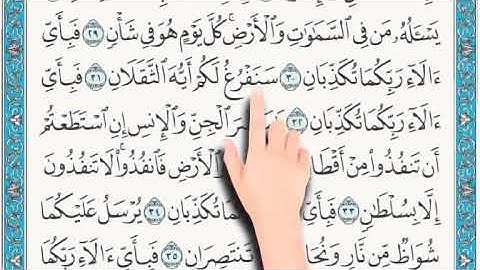 يَسْـَٔلُهُۥ مَن فِى ٱلسَّمَٰوَٰتِ وَٱلْأَرْضِ ۚ كُلَّ يَوْمٍ هُوَ فِى شَأْنٍ ٢٩ فَبِأَىِّ
ءَالَآءِ رَبِّكُمَا تُكَذِّبَانِ ٣٠ سَنَفْرُغُ لَكُمْ أَيُّهَ ٱلثَّقَلَانِ ٣١ فَبِأَىِّ
ءَالَآءِ رَبِّكُمَا تُكَذِّبَانِ ٣٢ ٱلْجِنِّ وَٱلْإِنسِ إِنِ ٱسْتَطَعْتُمْ
أَن تَنفُذُوا۟ مِنْ أَقْطَا ٱلْأَرْضِ فَٱنفُذُوا۟ ۚ لَا تَنفُذُونَ
إِلَّا بِسُلْطَٰنٍ ٣٣ فَبِأَىِّ تُكَذِّبَانِ ٣٤ يُرْسَلُ عَلَيْكُمَا
شُوَاظٌ مِّن نَّارٍ وَنُحَا تَنتَصِرَانِ ٣٥ فَبِأَىِّ ءَالَآءِ رَبِّكُمَا